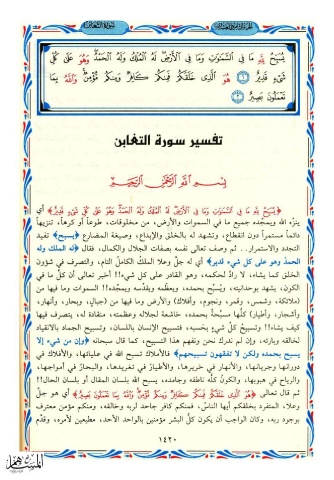 سورة التغابن
يُسَبِّحُ لِلَّهِ مَا فِي السَّمَاوَاتِ وَمَا فِي الْأَرْضِ لَهُ الْمُلْكُ وَلَهُ الْحَمْدُ وَهُوَ عَلَىٰ كُلِّ
شَيْءٍ قَدِيرٌ ۝١ هُوَ الَّذِي خَلَقَكُمْ فَمِنكُمْ كَافِرٌ وَمِنكُم مُّؤْمِنٌ وَاللَّهُ بِمَا
تَعْمَلُونَ بَصِيرٌ ۝٢
تفسير سورة التغابن
بسم الله الرحمن الرحيم
﴿يُسَبِّحُ لِلَّهِ مَا فِي السَّمَاوَاتِ وَمَا فِي الْأَرْضِ لَهُ الْمُلْكُ وَلَهُ الْحَمْدُ وَهُوَ عَلَىٰ كُلِّ شَيْءٍ قَدِيرٌ﴾ أي
ينزّه الله ويمجّده جميع ما في السموات والأرض، من مخلوقات، طوعاً أو كرهاً، تنزيهاً
دائماً مستمراً دون انقطاع، وتشهد له بالخلق والإبداع، وصيغة المضارع ﴿يسبح﴾ تفيد
التجدد والاستمرار.. ثم وصف تعالى نفسه بصفات الجلال والكمال، فقال ﴿له الملك وله
الحمد وهو على كل شيء قدير﴾ أي له جل وعلا الملك الكامل التام، والتصرف في شؤون
الخلق كما يشاء، لا رادّ لحكمه، وهو القادر على كل شيء!! أخبر تعالى أن كلّ ما في
الكون، يشهد بوحدانيته، ويُسبّح بحمده، ويعظمه ويقدّسه ويمجّده!! السموات وما فيها من
(ملائكة، وشمس، وقمر، ونجوم، وأفلاك) والأرض وما فيها من (جبال، وبحار، وأنهار،
وأشجار، وأطيار) كلُّها مسبحةٌ بحمده، خاشعة لجلاله وعظمته، منقادة له، يتصرف فيها
كيف يشاء!! وتسبيحُ كلّ شيءٍ بحسبه، فتسبيح الإنسان باللسان، وتسبيح الجماد بالانقياد
لخالقه وبارئه، وإن لم ندرك نحن ونفهم هذا التسبيح، كما قال سبحانه ﴿وإن من شيء إلا
يسبح بحمده ولكن لا تفقهون تسبيحهم﴾ فالأملاك تسبح الله في عليائها، والأفلاك في
دورانها وجريانها، والأنهار في خريرها، والأطيار في تغريدها، والبحار في أمواجها،
والرياح في هبوبها، والكونُ كلُّه ناطقه وجامده، يسبح الله بلسان المقال أو بلسان الحال!!
ثم قال تعالى ﴿هُوَ الَّذِي خَلَقَكُمْ فَمِنكُمْ كَافِرٌ وَمِنكُم مُّؤْمِنٌ وَاللَّهُ بِمَا تَعْمَلُونَ بَصِيرٌ﴾ أي هو جلّ
وعلا، المتفرد بخلقكم أيها الناسُ، فمنكم كافر جاحد لربه وخالقه، ومنكم مؤمن معترف
بوجود ربه، وكان الواجب أن يكون كلُّ البشر مؤمنين بالواحد الأحد، مطيعين لأمره، وقدّم
١٤٢٠